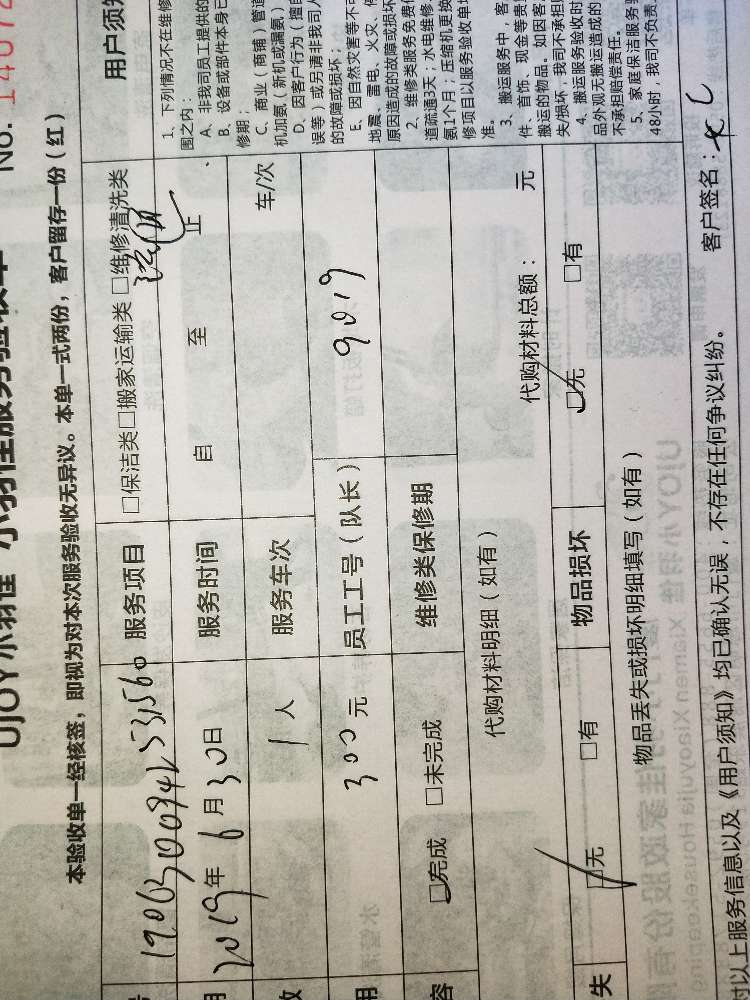 UJOY小羽佳 小羽佳服务验收单
No. 14072
本验收单一经核签，即视为对本次服务验收无异议。本单一式两份，客户留存一份（红）
服务项目 □保洁类□搬家运输类 □维修清洗类
2019年6月30日 服务时间 自 至 止
1人 服务车次 车/次
300元 员工工号（队长） 9019
□完成 □未完成 维修类保修期
代购材料明细（如有） 代购材料总额： 元
失 □无 □有 物品损坏 □无 □有
物品丢失或损坏明细填写（如有）
对以上服务信息以及《用户须知》均已确认无误，不存在任何争议纠纷。 客户签名：
用户须知
1、下列情况不在维修
围之内：
A、非我司员工提供的
B、设备或部件本身已
修期；
C、商业（商铺）管道
机加氨（新机或漏氨）
D、因客户行为（擅自
误等）或另请非我司人
的故障或损坏；
E、因自然灾害等不可
地震、雷电、火灾、
原因造成的故障或损坏
2、维修类服务免费保
道疏通3天；水电维修
氨1个月；压缩机更换
修项目以服务验收单
准。
3、搬运服务中，客
件、首饰、现金等贵
搬运的物品。如因客
失/损坏，我司不承担
4、搬运服务验收时
品外观无搬运造成的
不承担赔偿责任。
5、家庭保洁服务
48小时，我司不负责